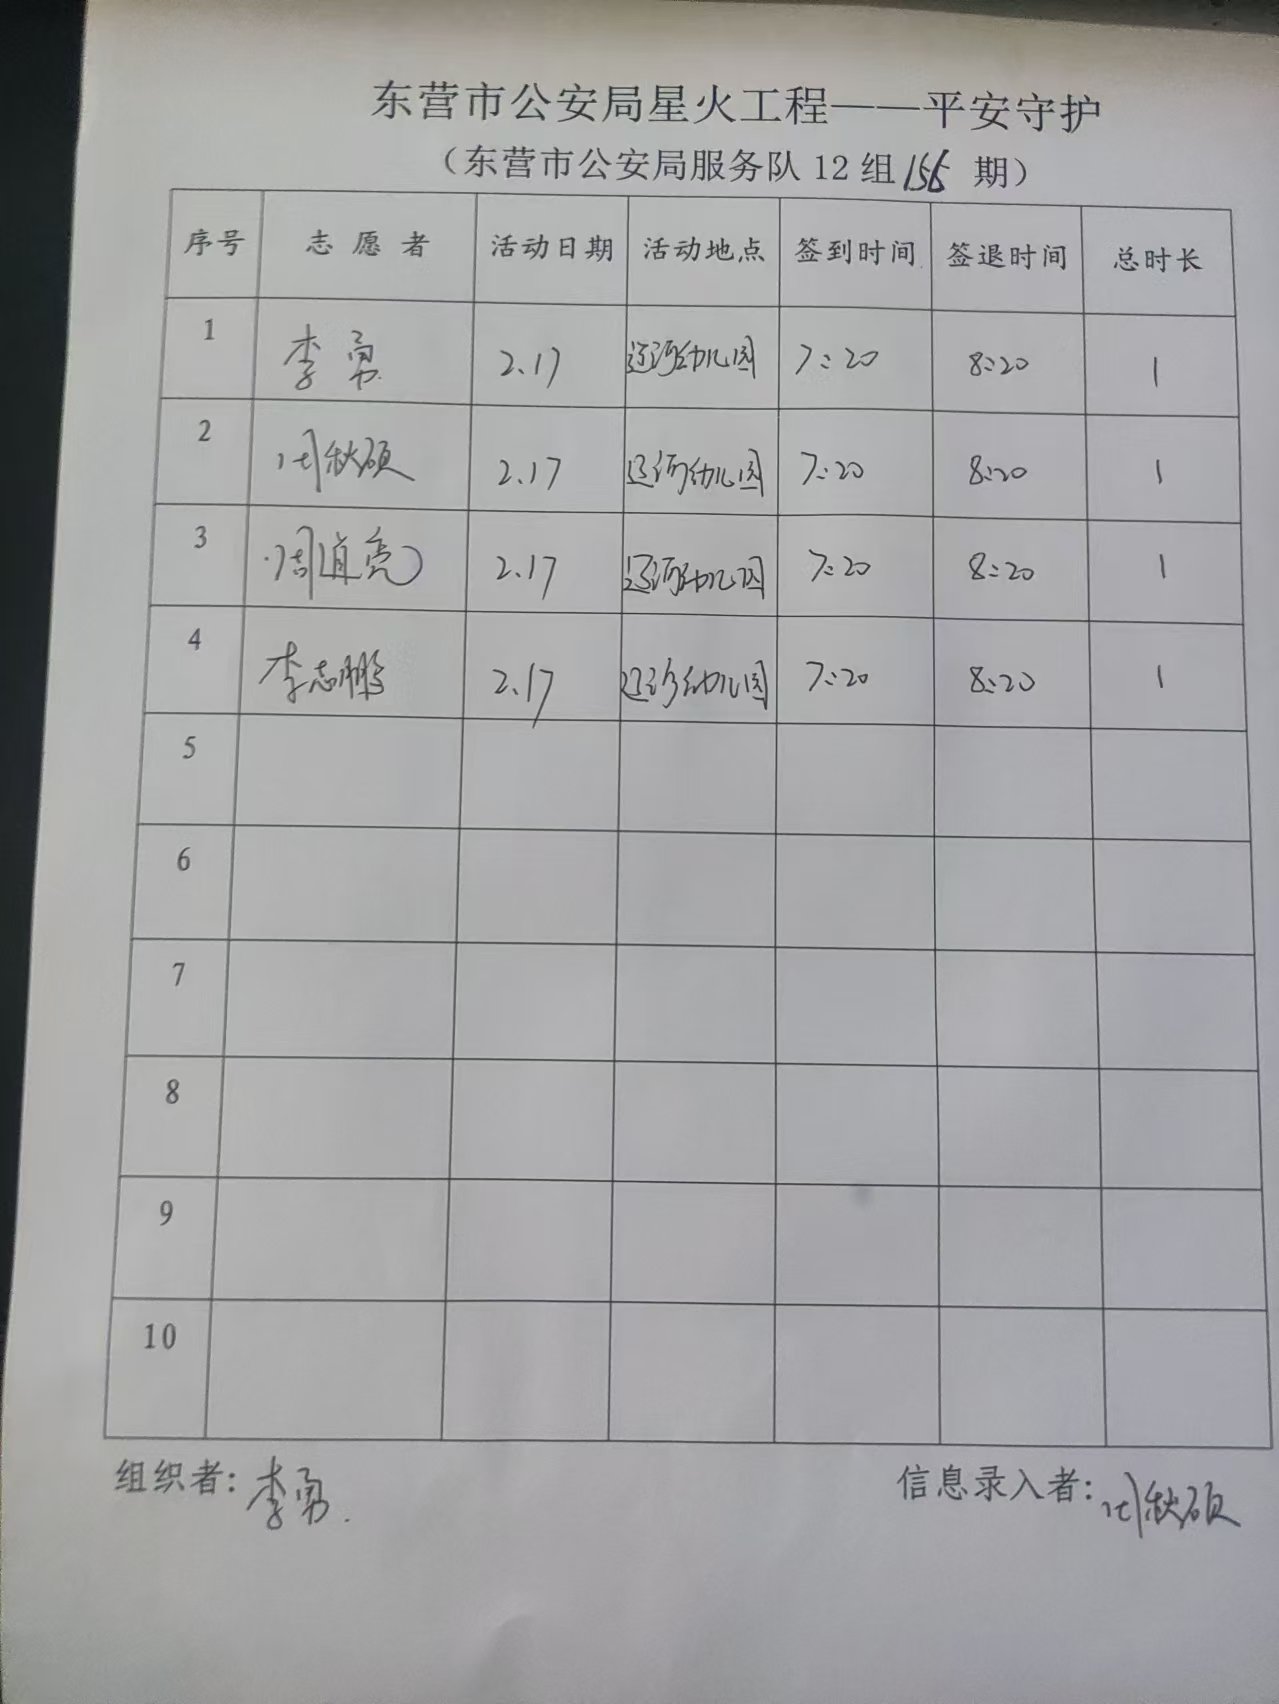 东营市公安局星火工程——平安守护
（东营市公安局服务队12组156期）
序号 志愿者 活动日期 活动地点 签到时间 签退时间 总时长
1 李勇 2.17 辽河幼儿园 7:20 8:20 1
2 闫秋硕 2.17 辽河幼儿园 7:20 8:20 1
3 周道亮 2.17 辽河幼儿园 7:20 8:20 1
4 李志鹏 2.17 辽河幼儿园 7:20 8:20 1
5
6
7
8
9
10
组织者：李勇 信息录入者：闫秋硕